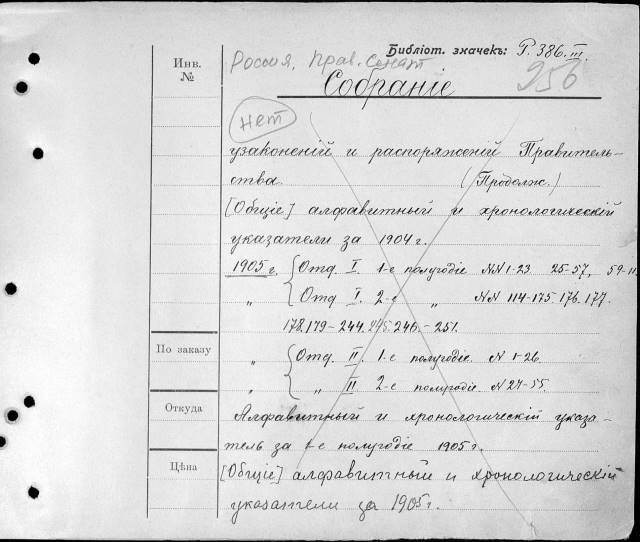 Библіот. значекъ: Р. 386. III.
Инв. №
Россия, Прав. Сенат
956
Собраніе
нет
узаконеній и распоряженій Правитель-
ства. (Продолж.)
[Общіе] алфавитный и хронологическій
указатели за 1904 г.
1905 г. Отд. I. 1-е полугодіе NN 1-23. 25-57, 59-11
„ Отд I. 2-е „ NN 114-175. 176. 177.
178. 179-244. 245. 246.-251.
По заказу
„ Отд. II. 1-е полугодіе. N 1-26.
„ „ II 2-е полугодіе. N 27-55.
Откуда
Алфавитный и хронологическій указа-
тель за 1-е полугодіе 1905 г.
Цѣна
[Общіе] алфавитный и хронологическій
указатели за 1905 г.